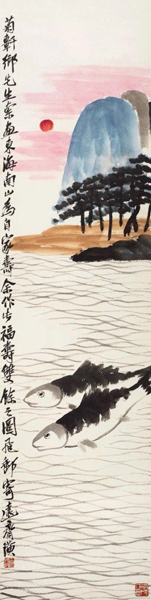 菊軒鄉先生索畫東海南山為自家壽余作此福壽雙餘之圖應郵寄遠齊璜